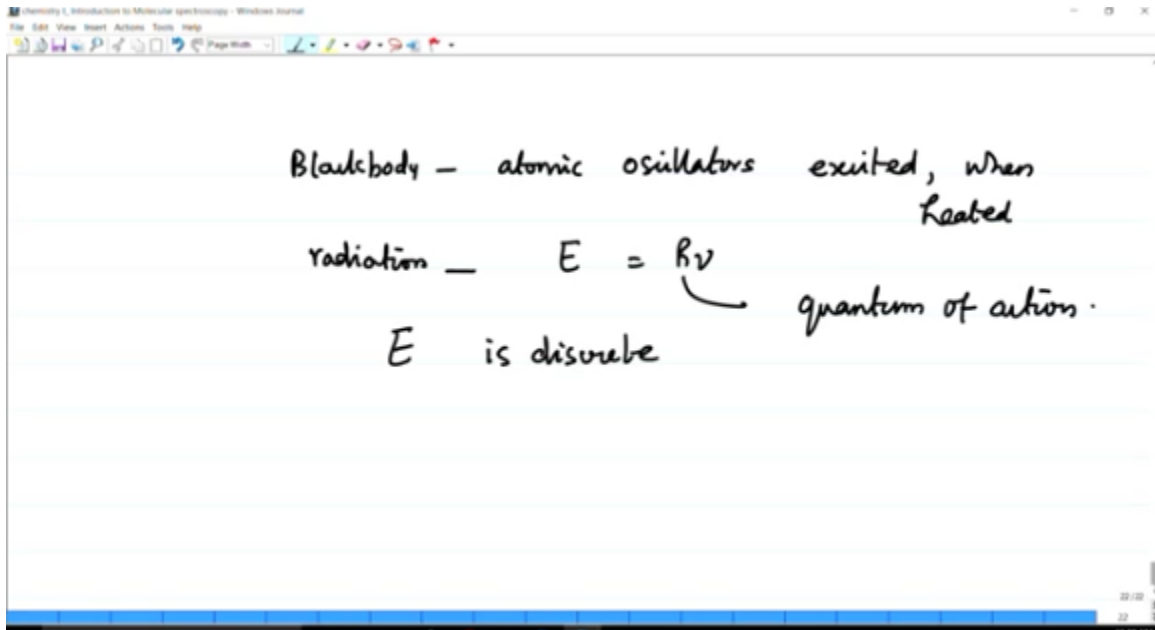 chemistry I, Introduction to Molecular spectroscopy - Windows Journal
File Edit View Insert Actions Tools Help
Page Width
Blackbody – atomic oscillators excited, when
heated
radiation – E = hν
quantum of action.
E is discrete
22/22
22